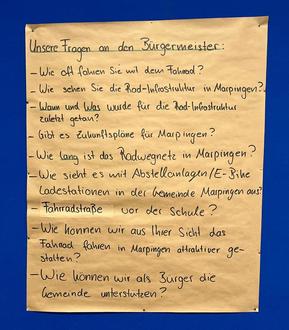 Unsere Fragen an den Bürgermeister:
- Wie oft fahren Sie mit dem Fahrrad?
- Wie sehen Sie die Rad-Infrastruktur in Marpingen?
- Wann und Was wurde für die Rad-Infrastruktur
zuletzt getan?
- Gibt es Zukunftspläne für Marpingen?
- Wie lang ist das Radwegnetz in Marpingen?
- Wie sieht es mit Abstellanlagen/E-Bike
Ladestationen in der Gemeinde Marpingen aus?
- Fahrradstraße vor der Schule?
- Wie können wir aus Ihrer Sicht das
Fahrrad fahren in Marpingen attraktiver ge-
stalten?
- Wie können wir als Bürger die
Gemeinde unterstützen?